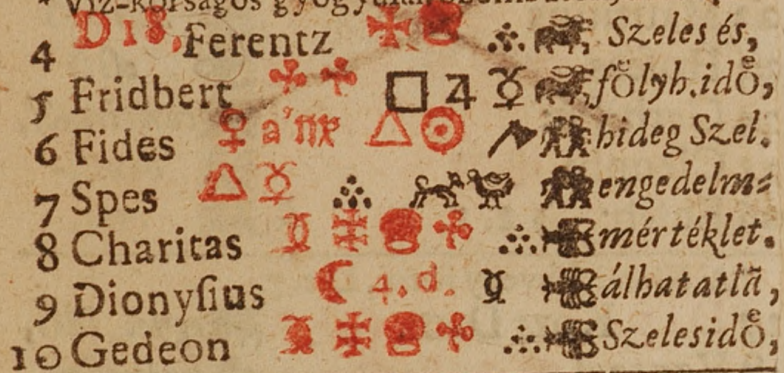 Víz-kórságos gyógyulás
4 D 18. Ferentz Szeles és,
5 Fridbert □ ♃ ☿ fölyh.idö,
6 Fides ♀ a'np △ ☉ hideg Szel.
7 Spes △ ☿ engedelm=
8 Charitas mértéklet.
9 Dionyſius ☾ 4. d. ☿ álhatatlā,
10 Gedeon Szelesidö,